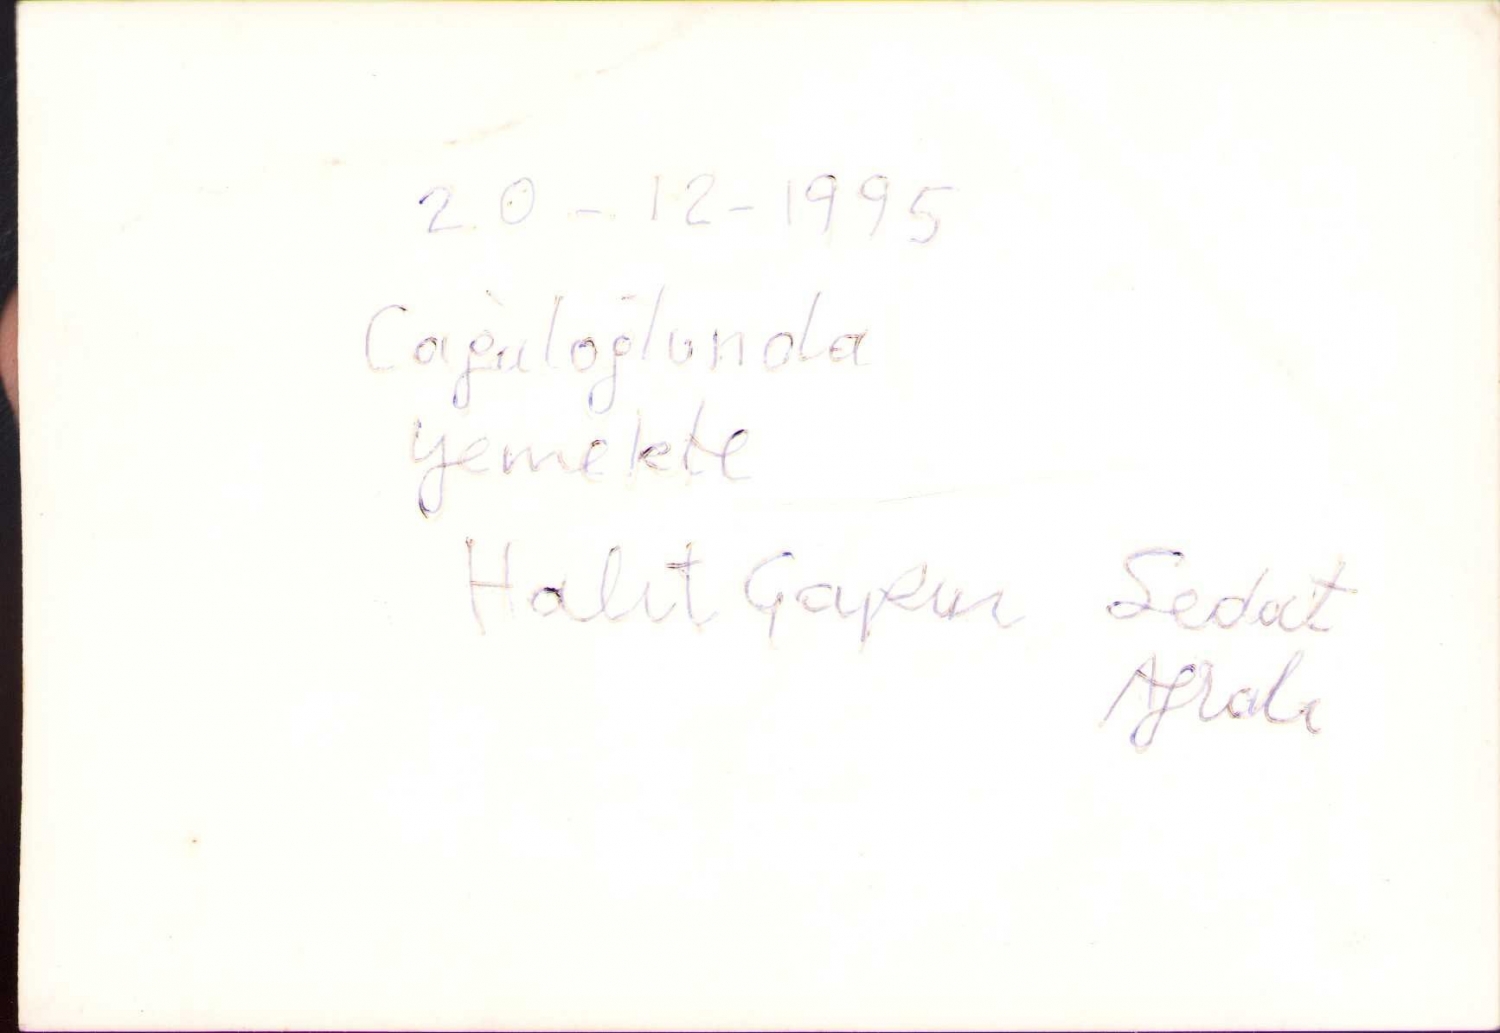 20-12-1995
Cağaloğlunda
yemekte
Halit Çapın Sedat
Ağralı